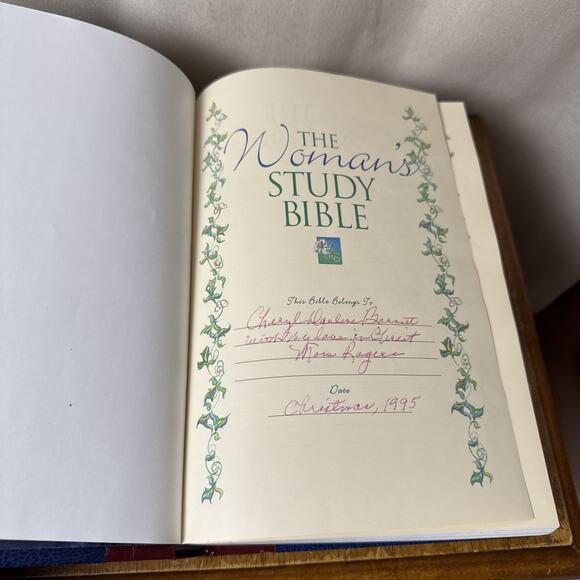 THE
Woman's
STUDY
BIBLE
This Bible Belongs To
Cheryl Darlene Barnett
with my love in Christ
Mom Rogers
Date
Christmas, 1995